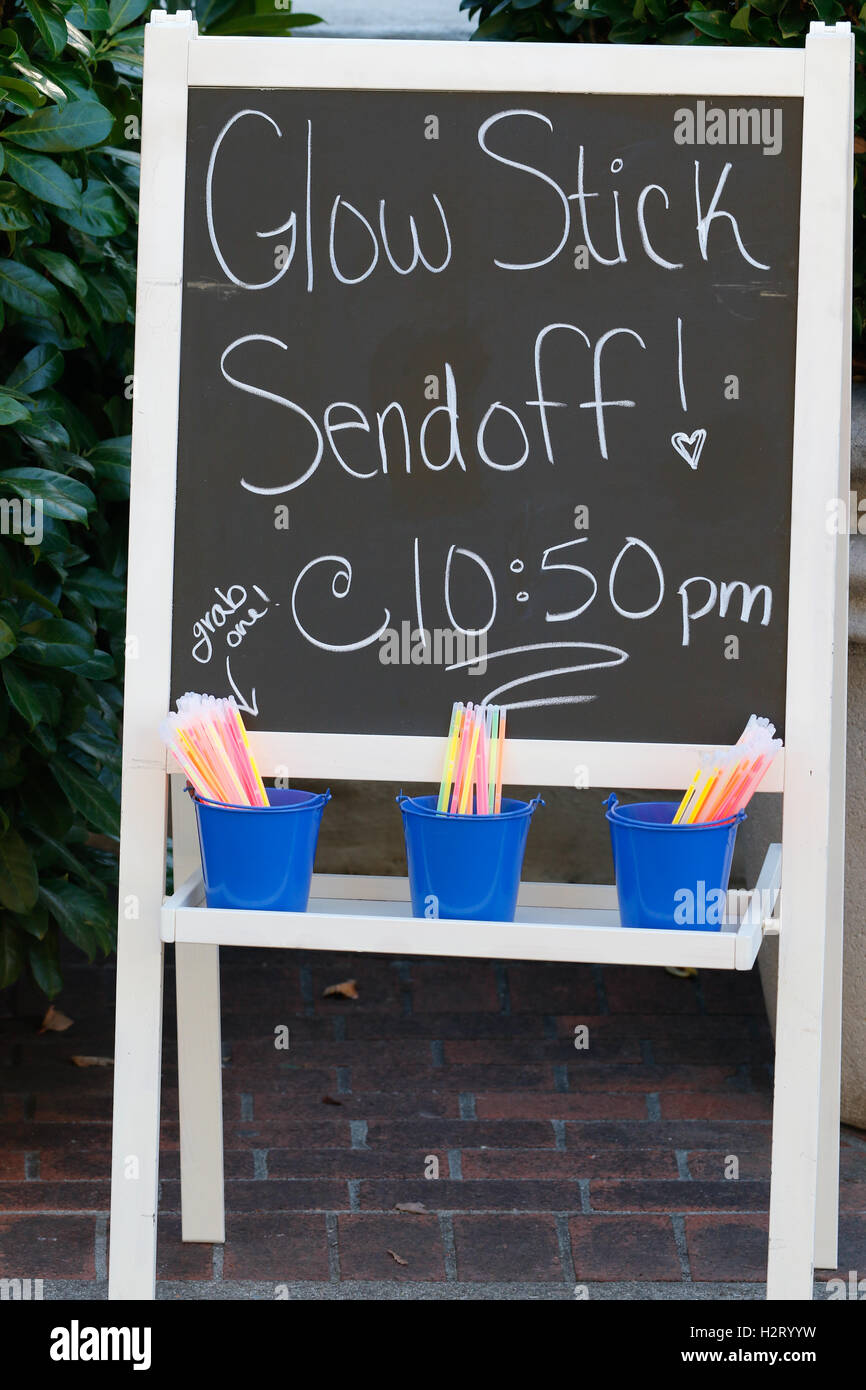 Glow Stick
Sendoff!
@ 10:50pm
grab
one!
alamy
Image ID: H2RYYW
www.alamy.com